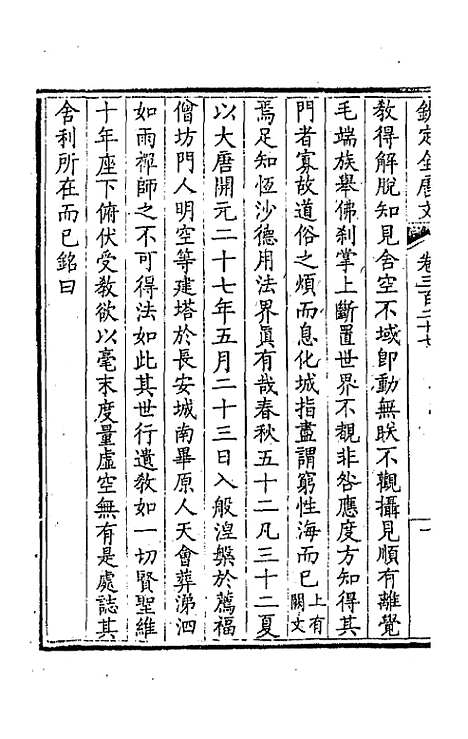 欽定全唐文
卷三百二十七
一
教得解脫知見舍空不域即動無朕不觀攝見順有離覺
毛端族舉佛刹掌上斷置世界不覩非咎應度方知得其
門者寡故道俗之煩而息化城指盡謂窮性海而已上有闕文
焉足知恆沙德用法界眞有哉春秋五十二凡三十二夏
以大唐開元二十七年五月二十三日入般涅槃於薦福
僧坊門人明空等建塔於長安城南畢原人天會葬涕泗
如雨禪師之不可得法如此其世行遺教如一切賢聖維
十年座下俯伏受教欲以毫末度量虛空無有是處誌其
舍利所在而已銘曰